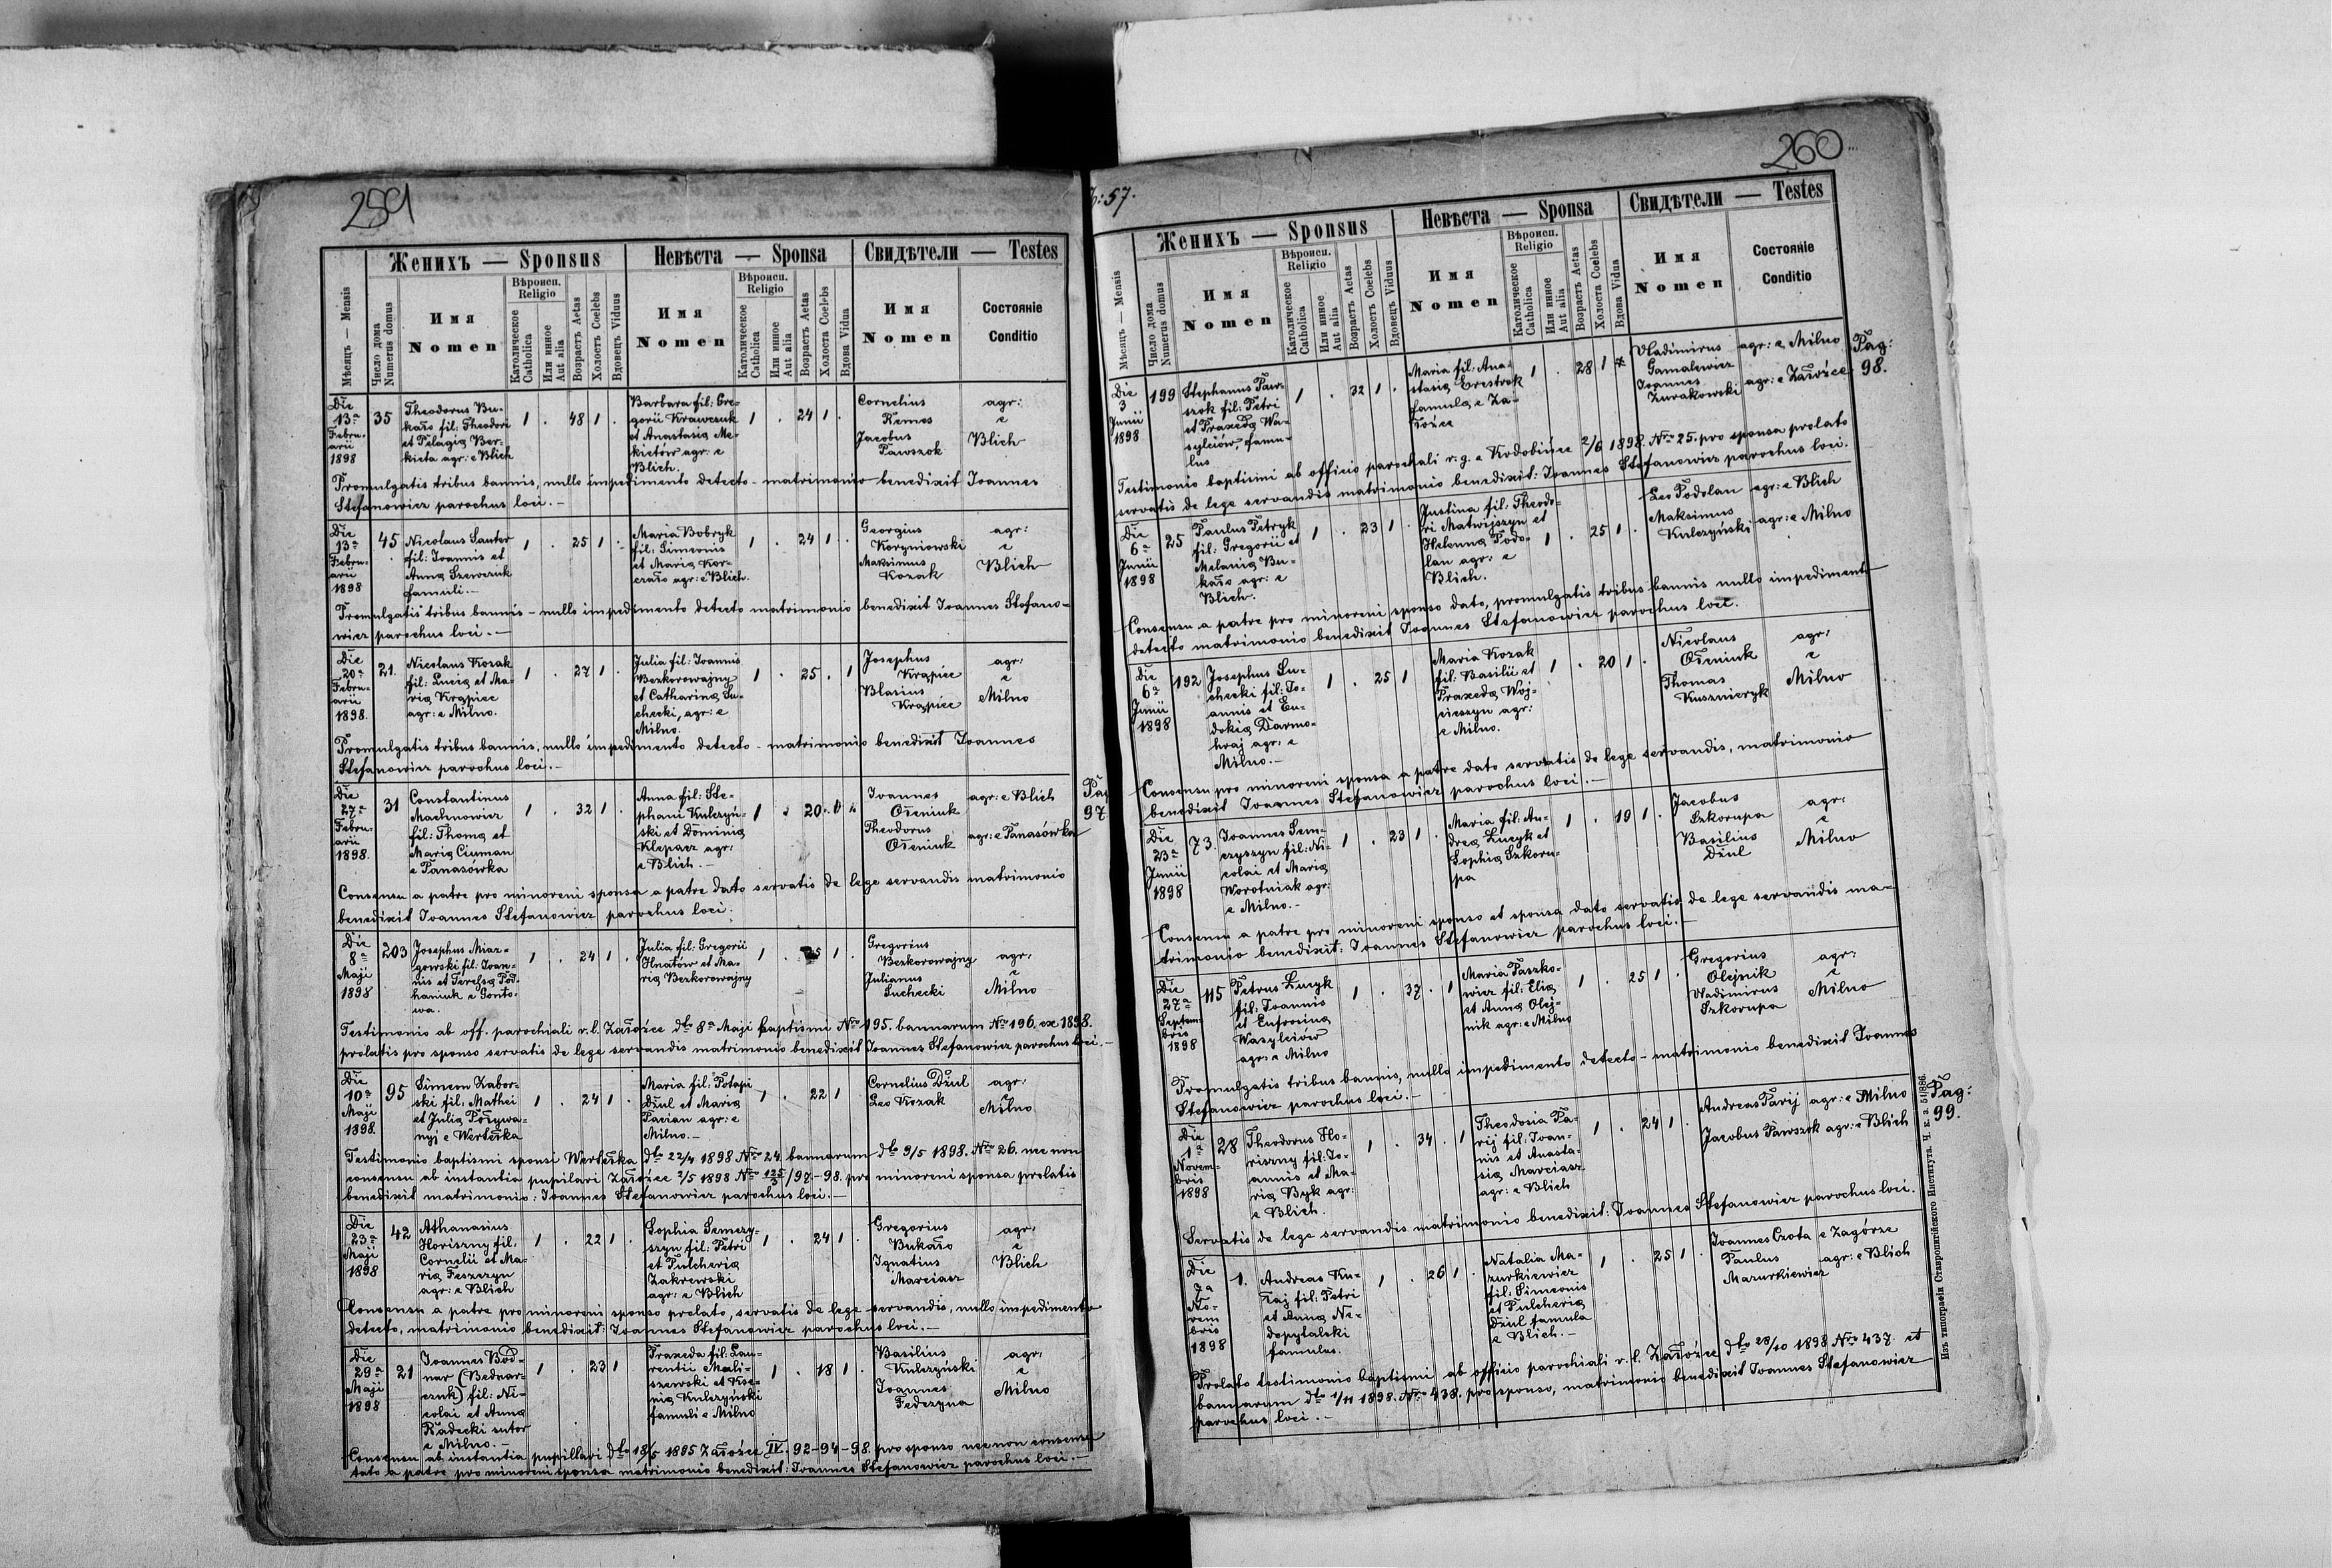 259
Женихъ — Sponsus
Невѣста — Sponsa
Свидѣтели — Testes
Мѣсяцъ — Mensis
Число дома
Numerus domus
Имя
Nomen
Вѣроисп.
Religio
Католическое
Catholica
Или инное
Aut alia
Возрастъ Aetas
Холостъ Coelebs
Вдовецъ Viduus
Имя
Nomen
Вѣроисп.
Religio
Католическое
Catholica
Или инное
Aut alia
Возрастъ Aetas
Холоста Coelebs
Вдова Vidua
Имя
Nomen
Состояніе
Conditio
Die
13ª
Febru-
arii
1898
35
Theodorus Bu-
kało fil: Theodori
et Pelagia Ber-
kieta agr: e Blich
1 . 48 1 .
Barbara fil: Gre-
gorii Krawczuk
et Anastasia Me-
kietów agr: e
Blich.
1 . 24 1 .
Cornelius
Remes
Jacobus
Pawszok
agr:
e
Blich
Promulgatis tribus bannis, nullo impedimento detecto - matrimonio benedixit Joannes
Stefanowicz parochus loci. —
Die
13ª
Febru-
arii
1898
45
Nicolaus Santer
fil: Joannis et
Anna Szewczuk
famuli. —
1 . 25 1 .
Maria Bobryk
fil: Simeonis
et Maria Kor-
czało agr: e Blich.
1 . 24 1 .
Georgius
Koryniowski
Maksimus
Kozak
agr:
e
Blich
Promulgatis tribus bannis - nullo impedimento detecto matrimonio benedixit Joannes Stefano-
wicz parochus loci. —
Die
20ª
Febru-
arii
1898.
21.
Nicolaus Kozak
fil: Lucia et Ma-
ria Krąpiec
agr: e Milno.
1 . 27 1 .
Julia fil: Joannis
Bezkorowajny
et Catharina Su-
checki, agr: e
Milno.
1 . 25 . 1
Josephus
Krąpiec
Blasius
Krąpiec
agr:
e
Milno
Promulgatis tribus bannis, nullo impedimento detecto - matrimonio benedixit Joannes
Stefanowicz parochus loci. —
Pag
97.
Die
27ª
Febru-
arii
1898.
31
Constantinus
Machnowicz
fil: Thoma et
Maria Ciuman
e Panasówka
1 . 32 1 .
Anna fil: Ste-
phani Kulczyń-
ski et Dominia
Klepacz agr:
e Blich. —
1 . 20
Joannes
Ołeniuk
Theodorus
Ołeniuk
agr: e Blich
agr: e Panasówka
Consensu a patre pro minoreni sponsa a patre dato servatis de lege servandis matrimonio
benedixit Joannes Stefanowicz parochus loci.
Die
8ª
Maji
1898
203
Josephus Miaz-
gowski fil: Joan-
nis et Teresa Pod-
haniuk e Gonto-
wa.
1 . 24 1 .
Julia fil: Gregorii
Hnatów et Ma-
ria Bezkorowajny
1 . 25 1 .
Gregorius
Bezkorowajny
Julianus
Suchecki
agr:
e
Milno
Testimonio ab off. parochiali r. l. Załoźce dto 8ª Maji baptismi Nro 195. bannarum Nro 196. ex 1898.
prolatis pro sponso servatis de lege servandis matrimonio benedixit Joannes Stefanowicz parochus loci. —
Die
10ª
Maji
1898.
95
Simeon Zabor-
ski fil: Mathei
et Julia Pożywa-
nyj e Wertełka
1 . 24 1 .
Maria fil: Potapi
Dżul et Maria
Parian agr: e
Milno. —
1 . 22 1
Cornelius Dżul
Leo Kozak
agr:
e
Milno
Testimonio baptismi sponsi Wertełka dto 22/4 1898 Nro 24. bannarum dto 9/5 1898. Nro 26. nec non
consensu ab instantia pupilari Załoźce 2/5 1898 Nro 125/3 / 97.-98. pro minoreni sponsa prolatis
benedixit matrimonio: Joannes Stefanowicz parochus loci. —
Die
23ª
Maji
1898
42
Athanasius
Horiszny fil:
Cornelii et Ma-
ria Feszczyn
agr: e Blich
1 . 22 1 .
Sophia Semczy-
szyn fil: Petri
et Pulcheria
Zakrewski
agr: e Blich
1 . 24 1 .
Gregorius
Bukało
Ignatius
Marciasz
agr:
e
Blich
Consensu a patre pro minoreni sponso prolato, servatis de lege servandis, nullo impedimento
detecto, matrimonio benedixit: Joannes Stefanowicz parochus loci. —
Die
29ª
Maji
1898
21
Joannes Bod-
nar (Bednar-
czuk) fil: Ni-
colai et Anna
Radecki sutor
e Milno. —
1 . 23 1
Praxeda fil: Lau-
rentii Mali-
szewski et Kse-
nia Kulczyński
famuli e Milno
1 . 18 1 .
Basilius
Kulczyński
Joannes
Fedczyna
agr:
e
Milno
Consensu ab instantia pupillari dto 18/5 1895 Załoźce IV. 92-94-98. pro sponso nec non consensu
dato a patre pro minoreni sponsa matrimonio benedixit: Joannes Stefanowicz parochus loci. —
260
57.
Женихъ — Sponsus
Невѣста — Sponsa
Свидѣтели — Testes
Мѣсяцъ — Mensis
Число дома
Numerus domus
Имя
Nomen
Вѣроисп.
Religio
Католическое
Catholica
Или инное
Aut alia
Возрастъ Aetas
Холостъ Coelebs
Вдовецъ Viduus
Имя
Nomen
Вѣроисп.
Religio
Католическое
Catholica
Или инное
Aut alia
Возрастъ Aetas
Холоста Coelebs
Вдова Vidua
Имя
Nomen
Состояніе
Conditio
Pag:
98.
Die
3
Junii
1898
199
Stephanus Paw-
szok fil: Petri
et Praxeda Wa-
sylciów, famu-
lus
1 . 32 1 .
Maria fil: Ana-
stasia Krestrok
famula e Za-
łoźce
1 . 28 1
Vladimirus
Gamalewicz
Joannes
Zurakowski
agr: e Milno
agr: e Załoźce
Testimonio baptismi ab officio parochali r. g. e Kodobińce 2/6 1898. Nro 25. pro sponsa prolato
servatis de lege servandis matrimonio benedixit: Joannes Stefanowicz parochus loci.
Die
6ª
Junii
1898
25
Paulus Petryk
fil: Gregorii et
Melania Bu-
kało agr: e
Blich.
1 . 23 1 .
Justina fil: Theodo-
ri Matwijszyn et
Helenna Podo-
lan agr: e
Blich.
1 . 25 1 .
Leo Podolan
Maksimus
Kulczyński
agr: e Blich
agr: e Milno
Consensu a patre pro minoreni sponso dato, promulgatis tribus bannis nullo impedimento
detecto matrimonio benedixit Joannes Stefanowicz parochus loci.
Die
6ª
Junii
1898
192
Josephus Su-
checki fil: Jo-
annis et Eu-
dokia Darmo-
hraj agr: e
Milno. —
1 . 25 1
Maria Kozak
fil: Basilii et
Praxeda Woj-
cieszyn agr:
e Milno.
1 . 20 1 .
Nicolaus
Ołeniuk
Thomas
Kusznieryk
agr:
e
Milno
Consensu pro minoreni sponsa a patre dato servatis de lege servandis, matrimonio
benedixit Joannes Stefanowicz parochus loci. —
Die
23ª
Junii
1898
73.
Joannes Sem-
czyszyn fil: Ni-
colai et Maria
Worotniak agr:
e Milno. —
1 . 23 1 .
Maria fil: An-
drea Łucyk et
Sophia Szkoru-
pa
1 . 19 1 .
Jacobus
Szkorupa
Basilius
Dżul
agr:
e
Milno
Consensu a patre pro minoreni sponso et sponsa dato servatis de lege servandis ma-
trimonio benedixit: Joannes Stefanowicz parochus loci. —
Die
27ª
Septem-
bris
1898
115
Petrus Łucyk
fil: Joannis
et Eufrosina
Wasylciów
agr: e Milno
1 . 37 . 1
Maria Paszko-
wicz fil: Elia
et Anna Olej-
nik agr: e Milno
1 . 25 1 .
Gregorius
Olejnik
Vladimirus
Szkorupa
agr:
e
Milno
Promulgatis tribus bannis, nullo impedimento detecto - matrimonio benedixit Joannes
Stefanowicz parochus loci. —
Pag:
99.
Die
1ª
Novem-
bris
1898
28
Theodorus Ho-
riszny fil: Jo-
annis et Ma-
ria Byk agr:
e Blich.
1 . 34 . 1
Theodosia Pa-
rij fil: Joan-
nis et Anasta-
sia Marciasz
agr: e Blich
1 . 24 1 .
Andreas Parij
Jacobus Pawszok
agr: e Milno
agr: e Blich
Servatis de lege servandis matrimonio benedixit: Joannes Stefanowicz parochus loci.
Die
No-
vem
bris
1898
1.
Andreas Ku-
łaj fil: Petri
et Anna Ne-
dopytalski
famulus.
1 . 26 1 .
Natalia Ma-
zurkiewicz
fil: Simeonis
et Pulcheria
Dżul famula
e Blich. —
1 . 25 1 .
Joannes Czota
Paulus
Mazurkiewicz
e Zagórze
agr: e Blich
Prolato testimonio baptismi ab officio parochiali r. l. Załoźce dto 28/10 1898 Nro 437. et
bannarum dto 1/11 1898. Nro 438. pro sponso, matrimonio benedixit Joannes Stefanowicz
parochus loci. —
Изъ типографіи Ставропигійского Института. Ч. к. а. 51/886.